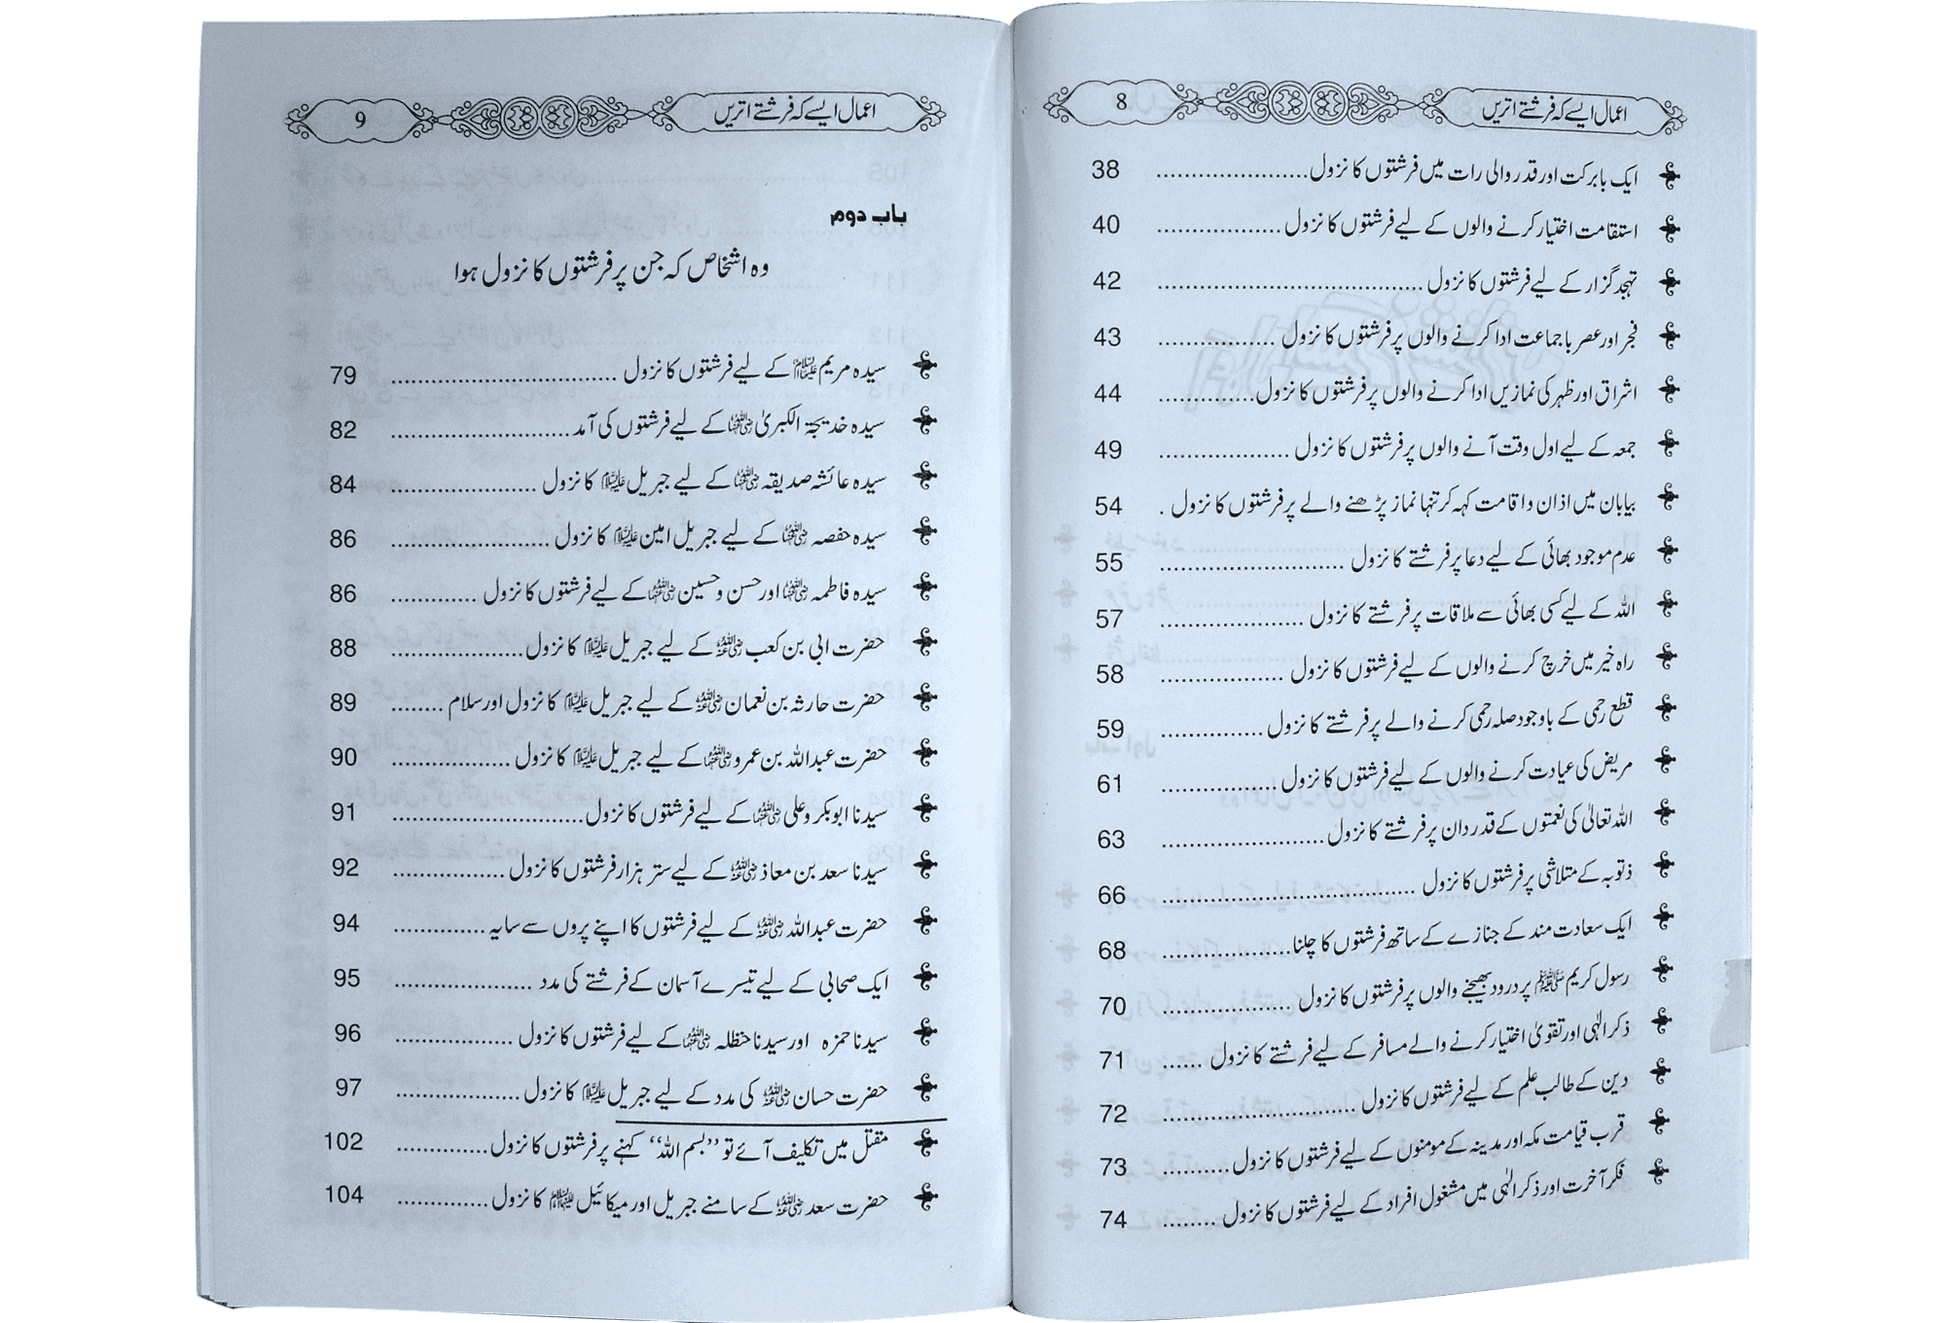 اعمال ایسے کہ فرشتے اتریں 8
ایک بابرکت اور قدر والی رات میں فرشتوں کا نزول ....................... 38
استقامت اختیار کرنے والوں کے لیے فرشتوں کا نزول ................... 40
تہجد گزار کے لیے فرشتوں کا نزول ........................................ 42
فجر اور عصر باجماعت ادا کرنے والوں پر فرشتوں کا نزول .................. 43
اشراق اور ظہر کی نمازیں ادا کرنے والوں پر فرشتوں کا نزول ............... 44
جمعہ کے لیے اول وقت آنے والوں پر فرشتوں کا نزول .................... 49
بیابان میں اذان و اقامت کہہ کر تنہا نماز پڑھنے والے پر فرشتوں کا نزول . 54
عدم موجود بھائی کے لیے دعا پر فرشتے کا نزول ............................ 55
اللہ کے لیے کسی بھائی سے ملاقات پر فرشتے کا نزول ...................... 57
راہ خیر میں خرچ کرنے والوں کے لیے فرشتوں کا نزول ................... 58
قطع رحمی کے باوجود صلہ رحمی کرنے والے پر فرشتے کا نزول ................ 59
مریض کی عیادت کرنے والوں کے لیے فرشتوں کا نزول .................. 61
اللہ تعالیٰ کی نعمتوں کے قدردان پر فرشتے کا نزول ......................... 63
ذتوبہ کے متلاشی پر فرشتوں کا نزول ...................................... 66
ایک سعادت مند کے جنازے کے ساتھ فرشتوں کا چلنا .................... 68
رسول کریم ﷺ پر درود بھیجنے والوں پر فرشتوں کا نزول .................... 70
ذکر الٰہی اور تقویٰ اختیار کرنے والے مسافر کے لیے فرشتے کا نزول ...... 71
دین کے طالب علم کے لیے فرشتوں کا نزول ............................. 72
قرب قیامت مکہ اور مدینہ کے مومنوں کے لیے فرشتوں کا نزول .......... 73
فکر آخرت اور ذکر الٰہی میں مشغول افراد کے لیے فرشتوں کا نزول ........ 74
اعمال ایسے کہ فرشتے اتریں 9
باب دوم
وہ اشخاص کہ جن پر فرشتوں کا نزول ہوا
سیدہ مریم علیہا السلام کے لیے فرشتوں کا نزول .................................. 79
سیدہ خدیجۃ الکبریٰ رضی اللہ عنہا کے لیے فرشتوں کی آمد ........................... 82
سیدہ عائشہ صدیقہ رضی اللہ عنہا کے لیے جبریل علیہ السلام کا نزول ...................... 84
سیدہ حفصہ رضی اللہ عنہا کے لیے جبریل امین علیہ السلام کا نزول ........................ 86
سیدہ فاطمہ رضی اللہ عنہا اور حسن و حسین رضی اللہ عنہما کے لیے فرشتوں کا نزول ............. 86
حضرت ابی بن کعب رضی اللہ عنہ کے لیے جبریل علیہ السلام کا نزول .................... 88
حضرت حارثہ بن نعمان رضی اللہ عنہ کے لیے جبریل علیہ السلام کا نزول اور سلام ........ 89
حضرت عبداللہ بن عمرو رضی اللہ عنہما کے لیے جبریل علیہ السلام کا نزول .................. 90
سیدنا ابوبکر و علی رضی اللہ عنہما کے لیے فرشتوں کا نزول ............................. 91
سیدنا سعد بن معاذ رضی اللہ عنہ کے لیے ستر ہزار فرشتوں کا نزول ................. 92
حضرت عبداللہ رضی اللہ عنہ کے لیے فرشتوں کا اپنے پروں سے سایہ .............. 94
ایک صحابی کے لیے تیسرے آسمان کے فرشتے کی مدد ..................... 95
سیدنا حمزہ اور سیدنا حنظلہ رضی اللہ عنہما کے لیے فرشتوں کا نزول .................. 96
حضرت حسان رضی اللہ عنہ کی مدد کے لیے جبریل علیہ السلام کا نزول ................... 97
مقتل میں تکلیف آئے تو ”بسم اللہ“ کہنے پر فرشتوں کا نزول .............. 102
حضرت سعد رضی اللہ عنہ کے سامنے جبریل اور میکائیل علیہما السلام کا نزول .............. 104